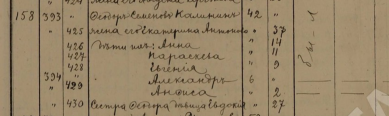 158 393 Ѳедоръ Семеновъ Калининъ 42 "
" 425 жена его Екатерина Антонова " 37
426 Дѣти ихъ: Анна " 14
427 Параскева " 11
428 Евгенія " 9
394 " Александръ 6 "
" 429 Анфиса " 2
" 430 Сестра Ѳедора дѣвица Евдокія " 27